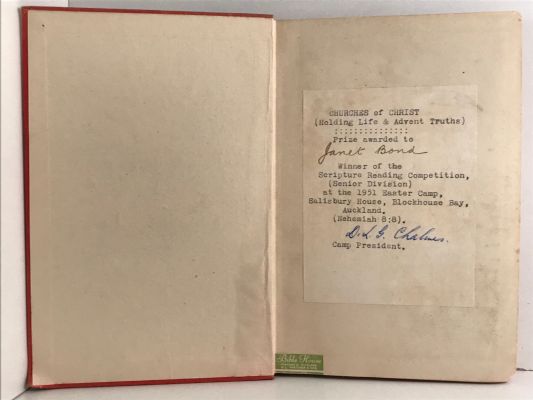 CHURCHES of CHRIST
(Holding Life & Advent Truths)
:::::::::::::::
Prize awarded to
Janet Bond
Winner of the
Scripture Reading Competition,
(Senior Division)
at the 1951 Easter Camp,
Salisbury House, Blockhouse Bay,
Auckland.
(Nehemiah 8:8).
D. L. G. Chalmers.
Camp President.
Bible House